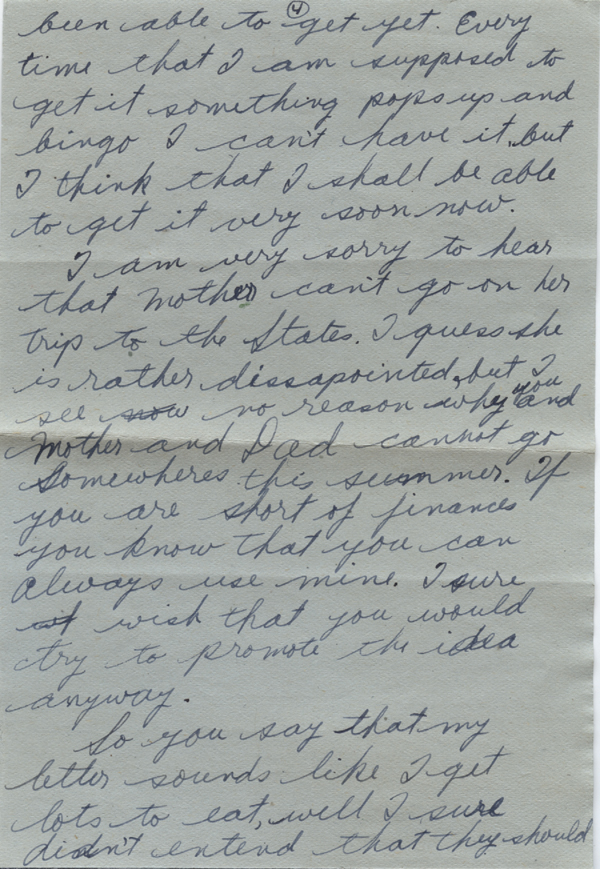 4
been able to get yet. Every
time that I am supposed to
get it something pops up and
bingo I can't have it, but
I think that I shall be able
to get it very soon now.
I am very sorry to hear
that Mother can't go on her
trip to the States. I guess she
is rather dissapointed, but I
see now no reason why you and
Mother and Dad cannot go
Somewheres this summer. If
you are short of finances
you know that you can
always use mine. I sure
wish that you would
try to promote the idea
anyway.
So you say that my
letter sounds like I get
lots to eat, well I sure
didn't entend that they should